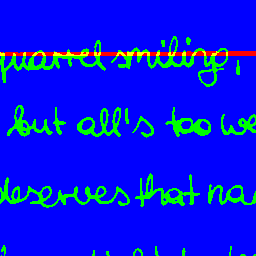 quarrel smiling,
but all's too we
deserves that na